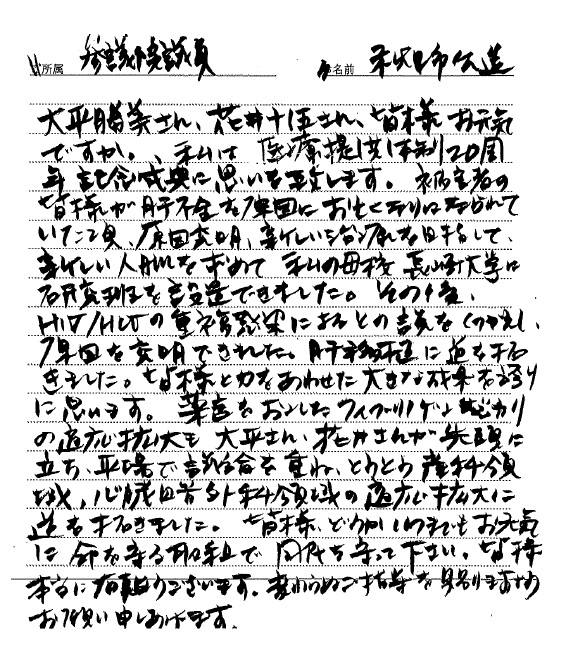 所属 参議院議員 お名前 秋野公造
大平勝美さん、花井十伍さん、皆様お元気
ですか。、私は 医療提供体制20周
年記念式典に思いを致します。被害者の
皆様が肝不全を原因にお亡くなりになられて
いた頃、原因究明、新しい治療を目指して、
新しい人脈を求めて 私の母校 長崎大学に
研究班を設置できました。その後、
HIV/HCVの重複感染によるとの議をくりかえし、
原因を究明できました。肝移植に道を拓
きました。皆様と力をあわせた大きな成果を誇り
に思います。薬害をおこしたフィブリノゲン
の適応拡大も 大平さん、花井さんが先頭に
立ち、平場で議論を重ね、とうとう産科領
域、心臓血管外科領域の適応拡大に
道を拓きました。皆様、どうかいつまでもお元気
に 命を守る取組で 国民を守って下さい。皆様
本当に有難うございます。変わらぬご指導を賜りますよう
お願い申しあげます。